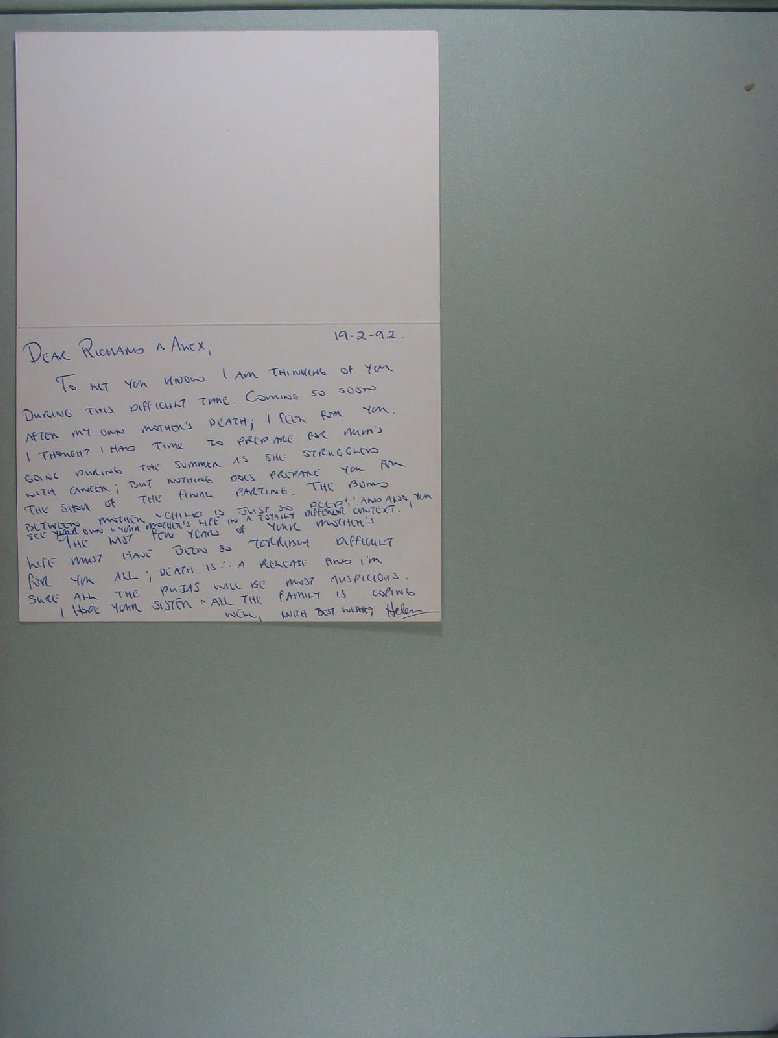 19-2-92.
DEAR RICHARD & ALEX,
TO LET YOU KNOW I AM THINKING OF YOU
DURING THIS DIFFICULT TIME. COMING SO SOON
AFTER MY OWN MOTHER'S DEATH, I FEEL FOR YOU.
I THOUGHT I HAD TIME TO PREPARE FOR MUM'S
GOING DURING THE SUMMER AS SHE STRUGGLED
WITH CANCER; BUT NOTHING DOES PREPARE YOU FOR
THE SHOCK OF THE FINAL PARTING. THE BOND
BETWEEN MOTHER & CHILD IS JUST SO DEEP! AND YOU
SEE YOUR OWN & YOUR MOTHER'S LIFE IN A TOTALLY DIFFERENT CONTEXT.
THE LAST FEW YEARS OF YOUR MOTHER'S
LIFE MUST HAVE BEEN SO TERRIBLY DIFFICULT
FOR YOU ALL; DEATH IS ∴ A RELEASE AND I'M
SURE ALL THE PUJAS WILL BE MOST AUSPICIOUS.
I HOPE YOUR SISTER & ALL THE FAMILY IS COPING
WELL, WITH BEST WISHES Helen